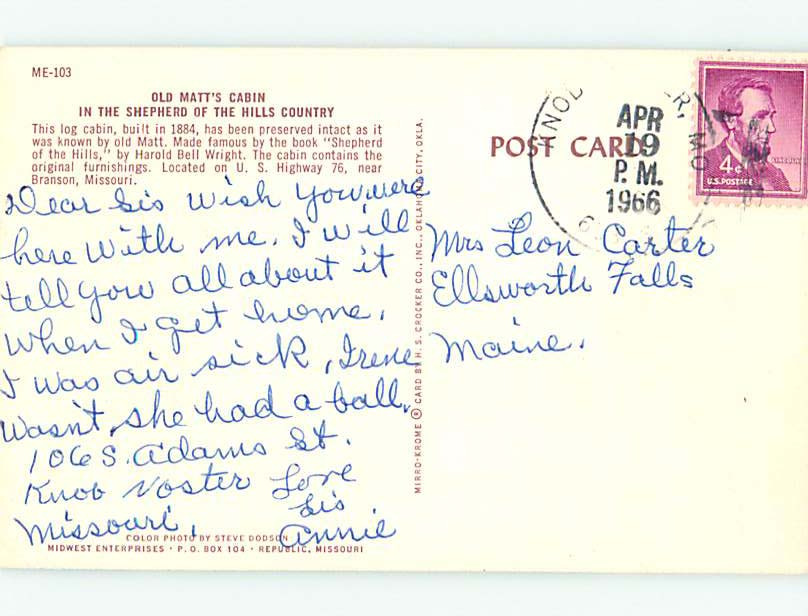 ME-103
OLD MATT'S CABIN
IN THE SHEPHERD OF THE HILLS COUNTRY
This log cabin, built in 1884, has been preserved intact as it
was known by old Matt. Made famous by the book "Shepherd
of the Hills," by Harold Bell Wright. The cabin contains the
original furnishings. Located on U. S. Highway 76, near
Branson, Missouri.
Dear Sis Wish You were
here With me. I will
tell you all about it
When I get home.
I was air sick, Irene
Wasn't, she had a ball.
106 S. Adams St.
Knob Noster Love
Missouri, Sis
Annie
COLOR PHOTO BY STEVE DODSON
MIDWEST ENTERPRISES · P. O. BOX 104 · REPUBLIC, MISSOURI
MIRRO-KROME ® CARD BY H. S. CROCKER CO., INC., OKLAHOMA CITY, OKLA.
POST CARD
APR
19
P. M.
1966
4¢
LINCOLN
U.S. POSTAGE
Mrs Leon Carter
Ellsworth Falls
Maine.